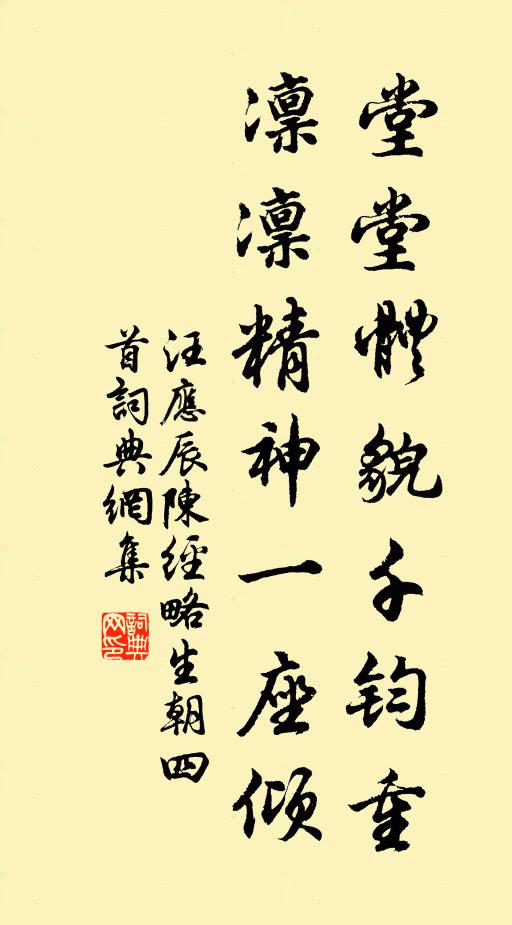 堂堂體貌千鈞重
凛凛精神一座傾
汪應辰陳經略生朝四
首詞典網集
詞典
网印